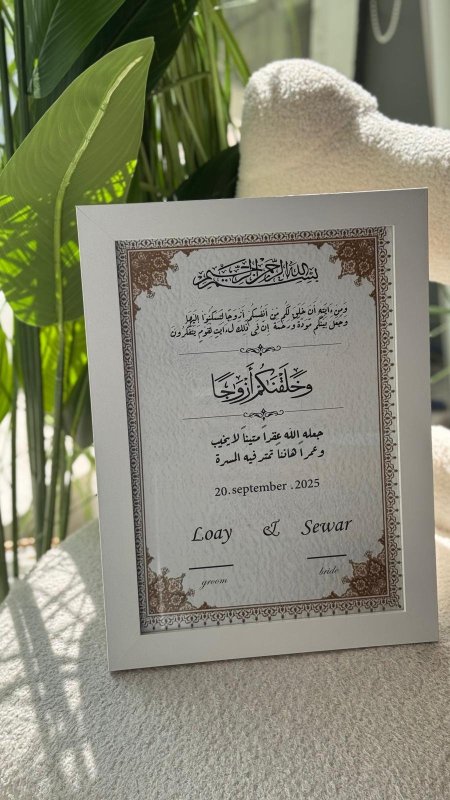 بسم الله الرحمن الرحيم
وَمِنْ ءَايَٰتِهِۦٓ أَنْ خَلَقَ لَكُم مِّنْ أَنفُسِكُمْ أَزْوَٰجًا لِّتَسْكُنُوٓا۟ إِلَيْهَا
وَجَعَلَ بَيْنَكُم مَّوَدَّةً وَرَحْمَةً إِنَّ فِى ذَٰلِكَ لَءَايَٰتٍ لِّقَوْمٍ يَتَفَكَّرُونَ
وَخَلَقْنَٰكُمْ أَزْوَٰجًا
جعله الله عقداً متيناً لا يخيب
وعمراً هانئاً تمتر فيه المسرة
20.september .2025
Loay & Sewar
groom bride